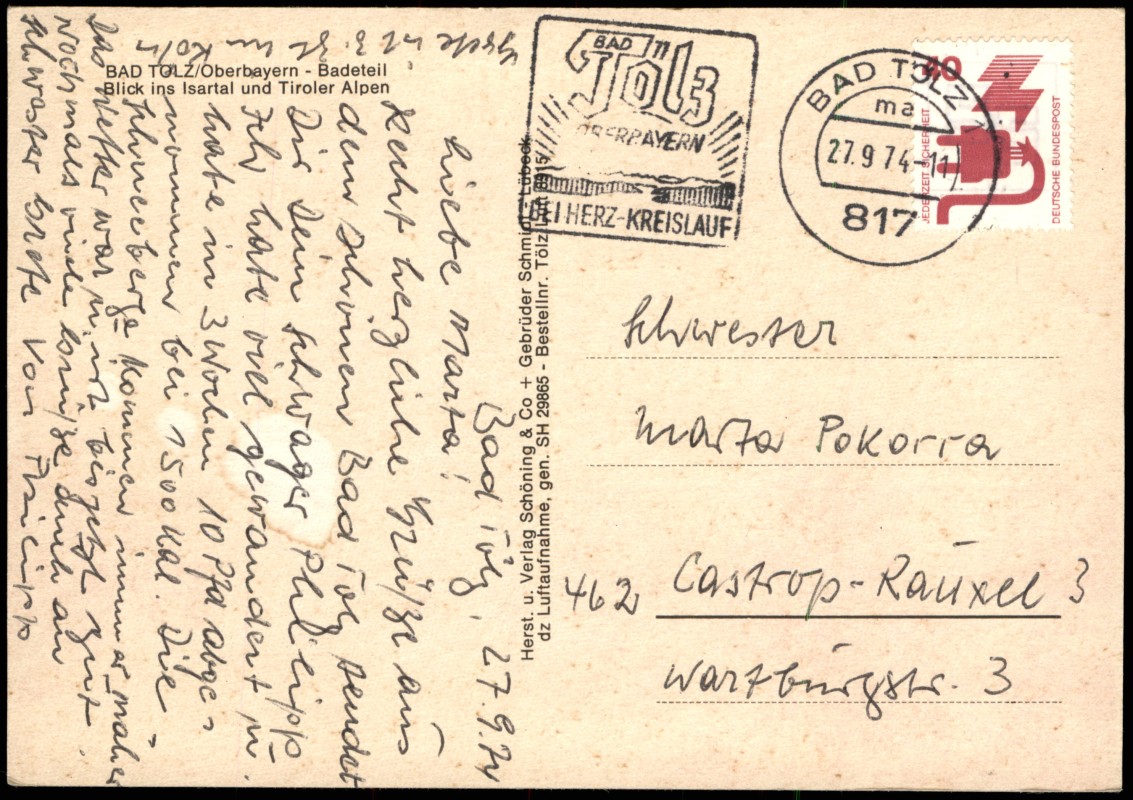 BAD TÖLZ/Oberbayern - Badeteil
Blick ins Isartal und Tiroler Alpen
Bad Tölz, 27.9.74
Liebe Marta!
Recht herzliche Grüße aus
dem schönen Bad Tölz sendet
Dir Dein Schwager Philipp
Ich habe viel gewandert u.
habe in 3 Wochen 10 Pfd abge=
nommen bei 1500 Kal. Die
Schneeberge kommen immer näher
Das Wetter war bis jetzt gut.
Nochmals viele Grüße auch an
Schwester Grete von Philipp
Grete ist z. Zt. in Köln
Herst. u. Verlag Schöning & Co + Gebrüder Schmidt - Lübeck
dz Luftaufnahme, gen. SH 29865 - Bestellnr. Tölz
BAD
Tölz
OBERBAYERN
BEI HERZ-KREISLAUF
BAD TÖLZ 1
ma
27.9.74-11
817
60
JEDERZEIT SICHERHEIT
DEUTSCHE BUNDESPOST
Schwester
Marta Pokorra
462 Castrop-Rauxel 3
Wartburgstr. 3